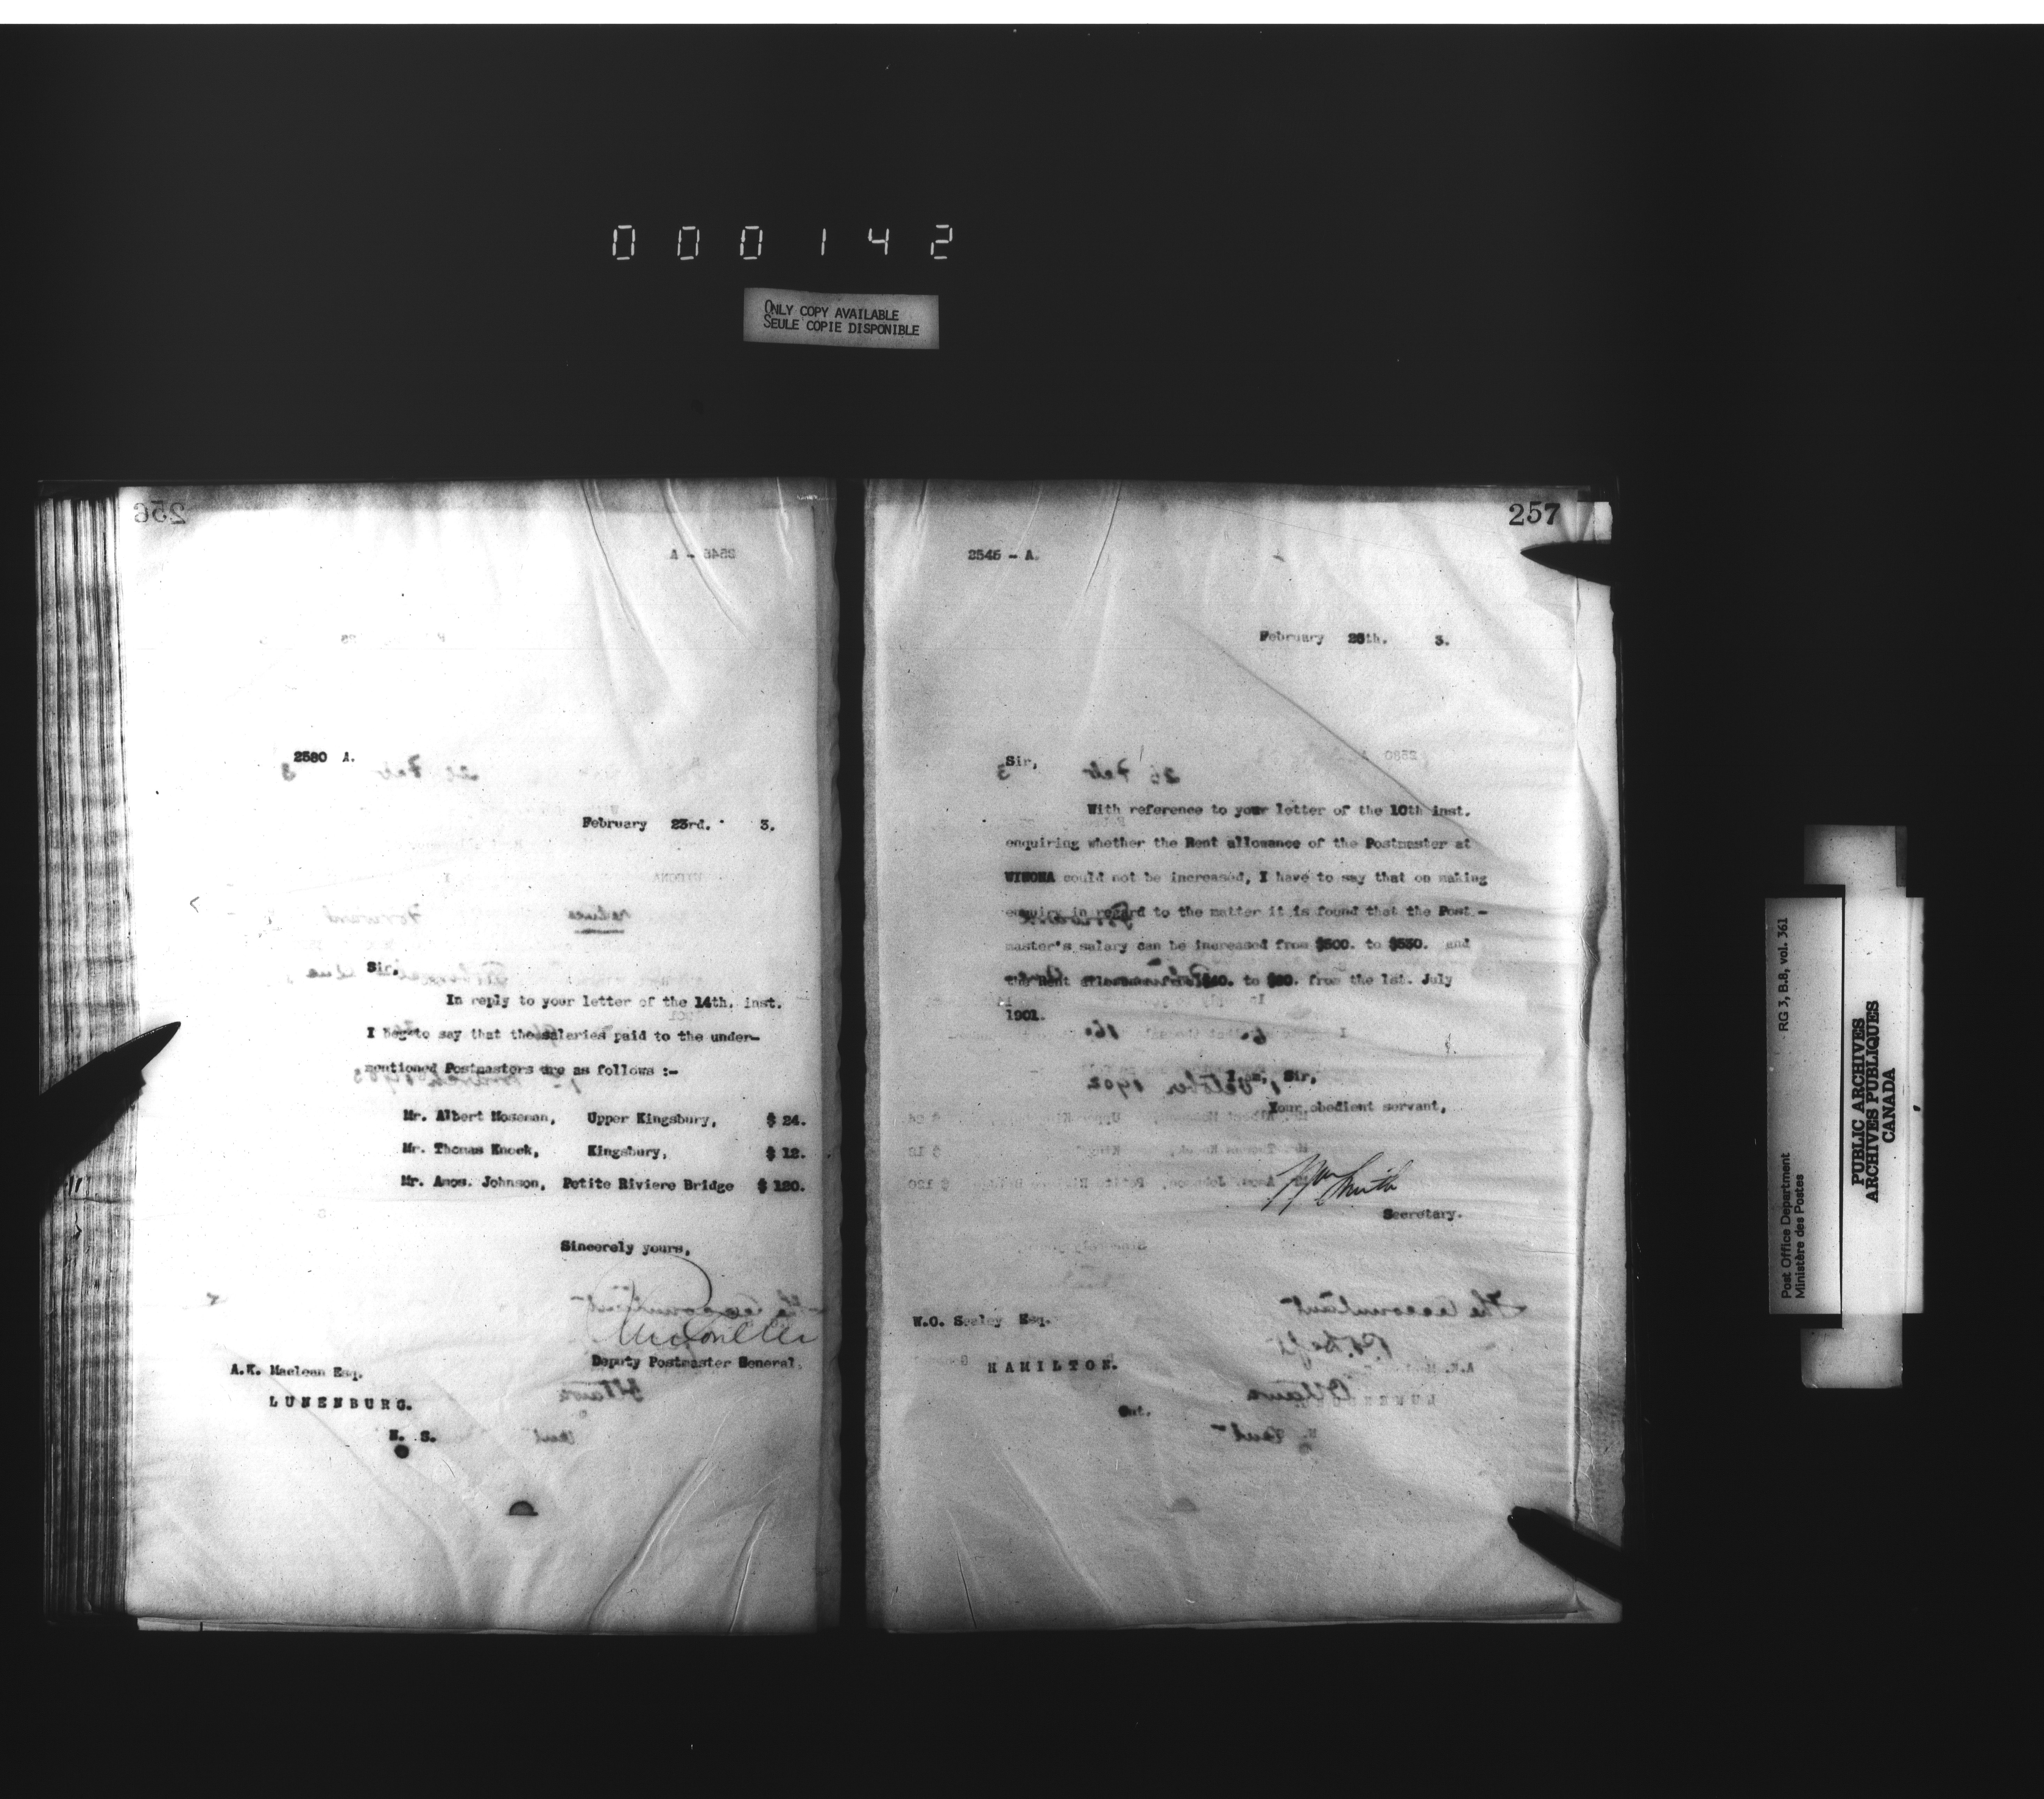 000142
ONLY COPY AVAILABLE
SEULE COPIE DISPONIBLE
256
2580 A.
February 23rd. 3.
Sir,
In reply to your letter of the 14th. inst.
I beg to say that the salaries paid to the under-
mentioned Postmasters are as follows :-
Mr. Albert Moseman, Upper Kingsbury, $ 24.
Mr. Thomas Knock, Kingsbury, $ 12.
Mr. Amos. Johnson, Petite Riviere Bridge $ 120.
Sincerely yours,
Deputy Postmaster General.
A.K. Maclean Esq.
LUNENBURG.
N. S.
257
2545 - A.
February 25th. 3.
Sir,
With reference to your letter of the 10th inst.
enquiring whether the Rent allowance of the Postmaster at
WINONA could not be increased, I have to say that on making
enquiry in regard to the matter it is found that the Post -
master's salary can be increased from $500. to $530. and
the Rent allowance from $40. to $80. from the 1st. July
1901.
I am, Sir,
Your obedient servant,
Wm Smith
Secretary.
W.O. Sealey Esq.
HAMILTON.
Ont.
RG 3, B.8, vol. 361
Post Office Department
Ministère des Postes
PUBLIC ARCHIVES
ARCHIVES PUBLIQUES
CANADA